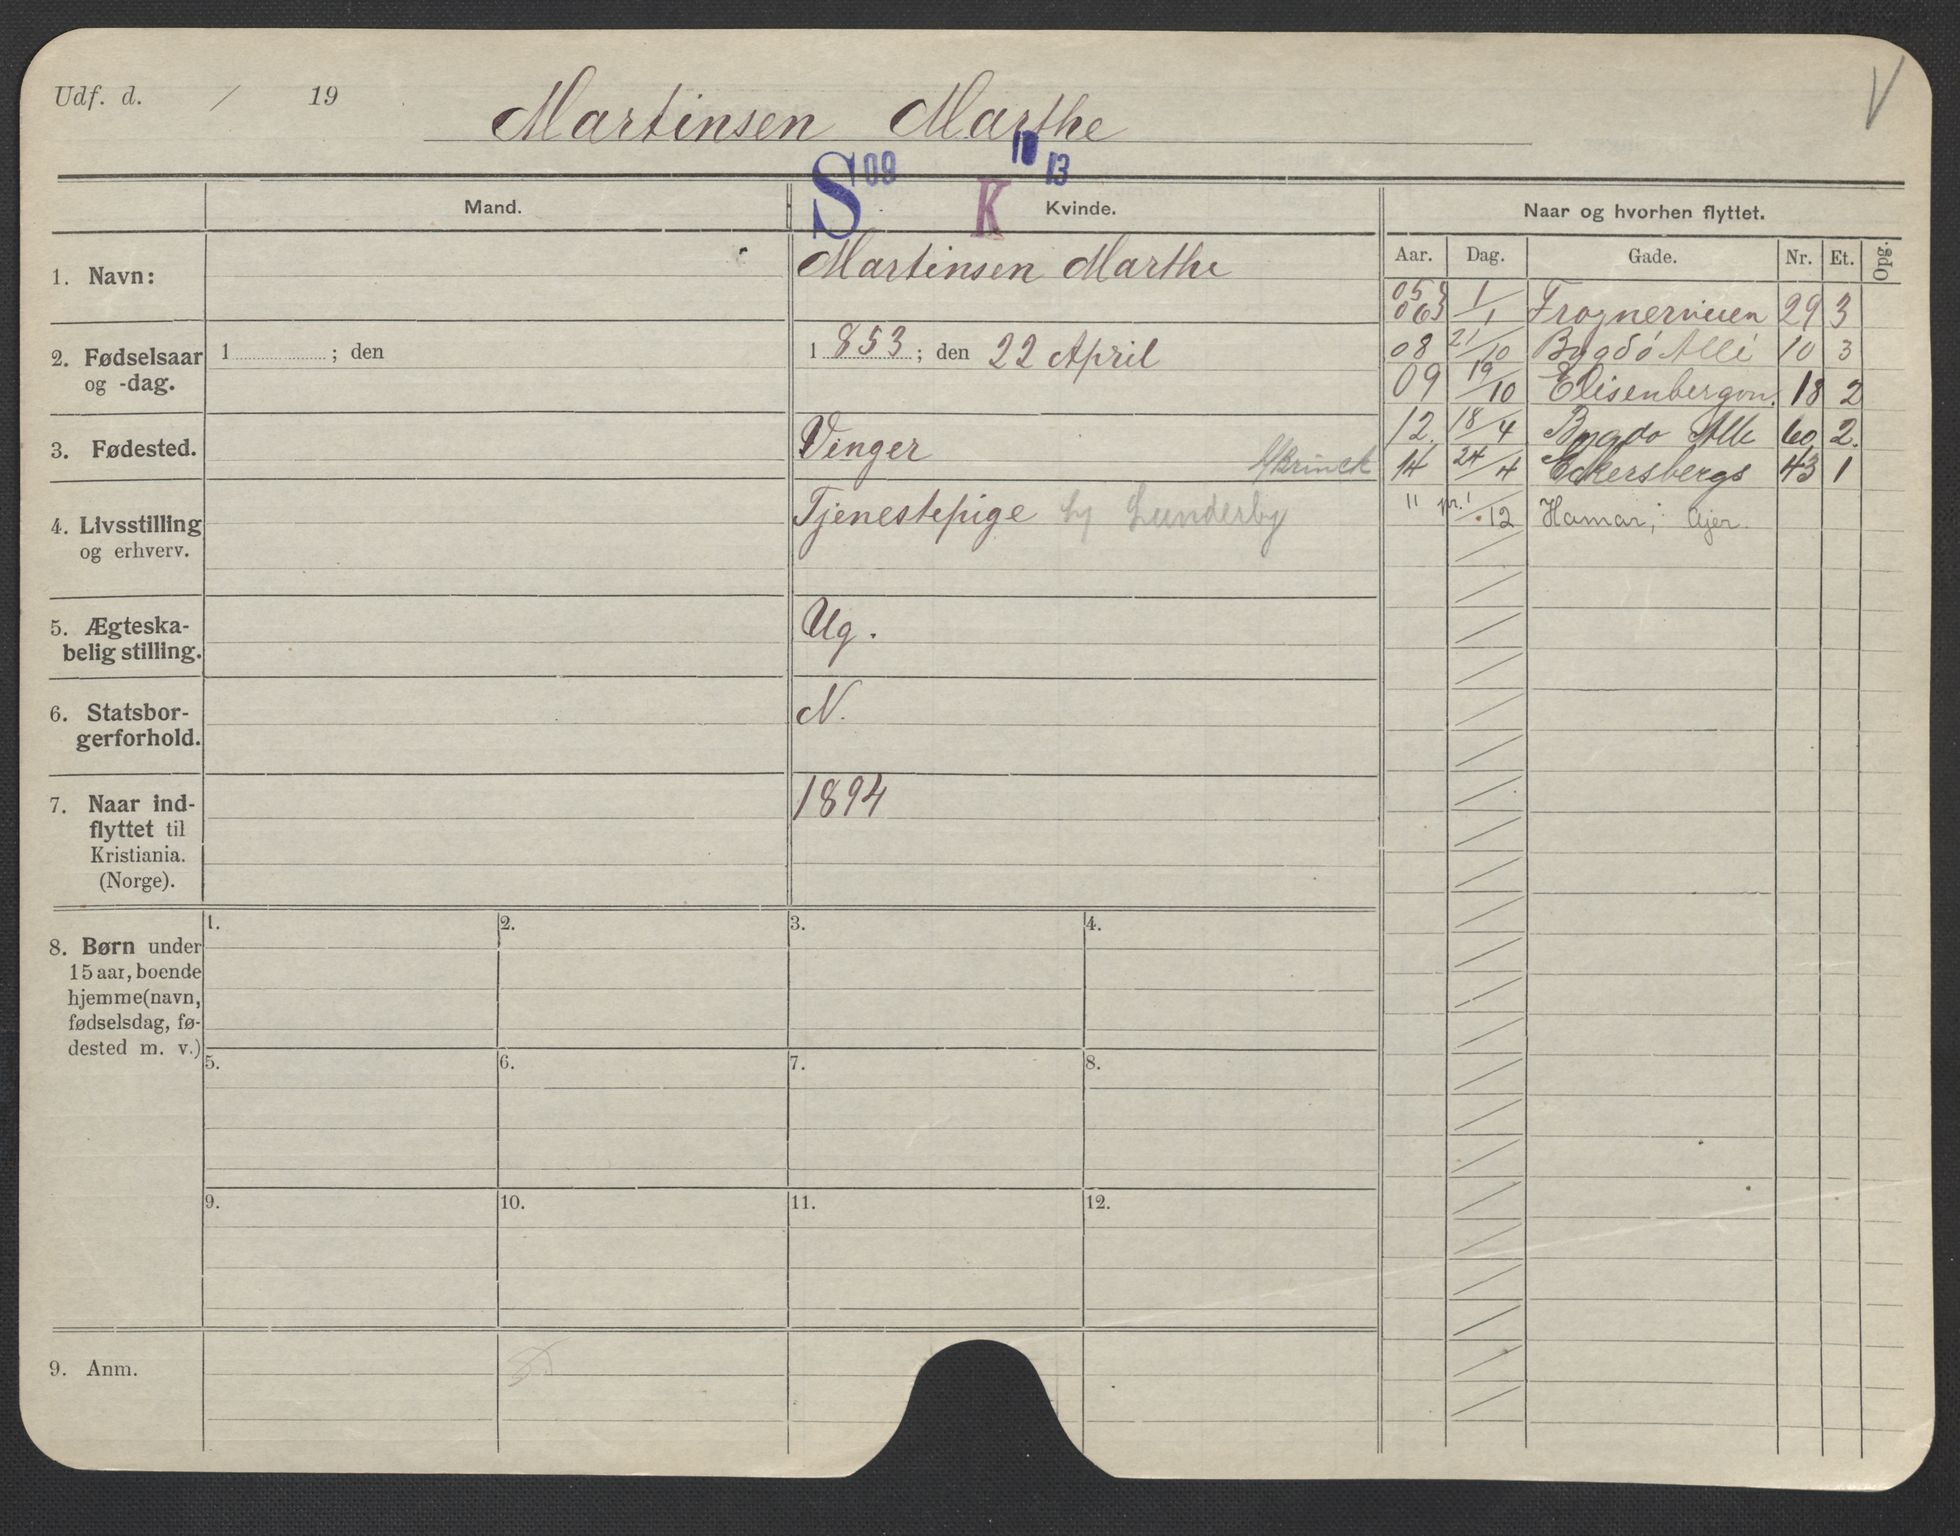 Udf. d. / 19
Martinsen Marthe
S 09 K 13
Mand. Kvinde. Naar og hvorhen flyttet.
Aar. Dag. Gade. Nr. Et. Opg.
1. Navn: Martinsen Marthe
2. Fødselsaar og -dag. 1 ; den 1 853 ; den 22 April
3. Fødested. Vinger
4. Livsstilling og erhverv. Tjenestepige Lunderby
5. Ægteska-
belig stilling. Ug.
6. Statsbor-
gerforhold. N.
7. Naar ind-
flyttet til
Kristiania.
(Norge). 1894
05
06 1/1 Frognerveien 29 3
08 21/10 Bygdö Allé 10 3
09 19/10 Elisenbergvn. 18 2
12. 18/4 Bygdo Alle 60 2.
14 24/4 Eckersbergs 43 1
" pr. 1/12 Hamar;
8. Børn under
15 aar, boende
hjemme (navn,
fødselsdag, fø-
dested m. v.)
1. 2. 3. 4.
5. 6. 7. 8.
9. 10. 11. 12.
9. Anm.